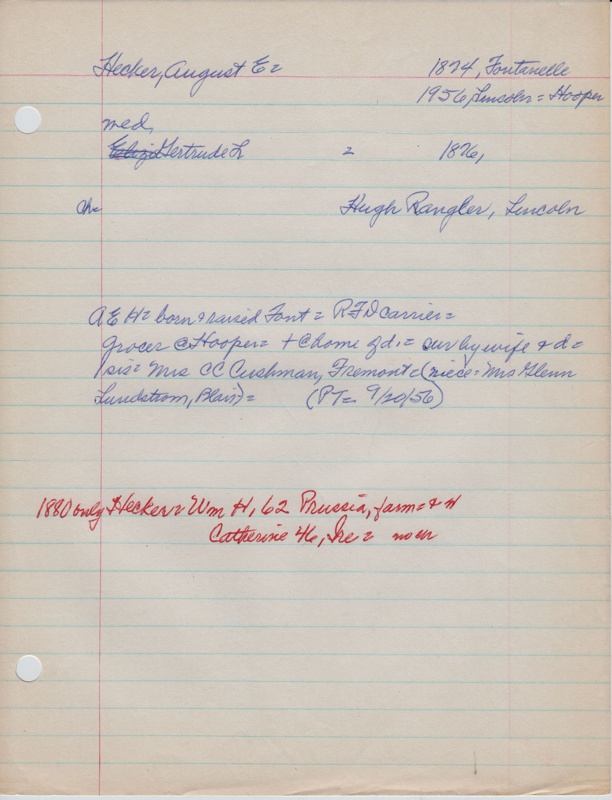 Hecker, August E = 1874, Fontanelle
1956, Lincoln = Hooper
med,
Gertrude L = 1876,
ch = Hugh Rangler, Lincoln
A E H = born & raised Font = RFD carrier =
grocer @ Hooper = + @ home of d. = sur by wife & d =
1 sis = Mrs CC Cushman, Fremont = (niece = Mrs Glenn
Lundstrom, Blair) = (PT = 9/20/56)
1880 only Hecker = Wm H, 62 Prussia, farm = & W
Catherine 46, Ire =